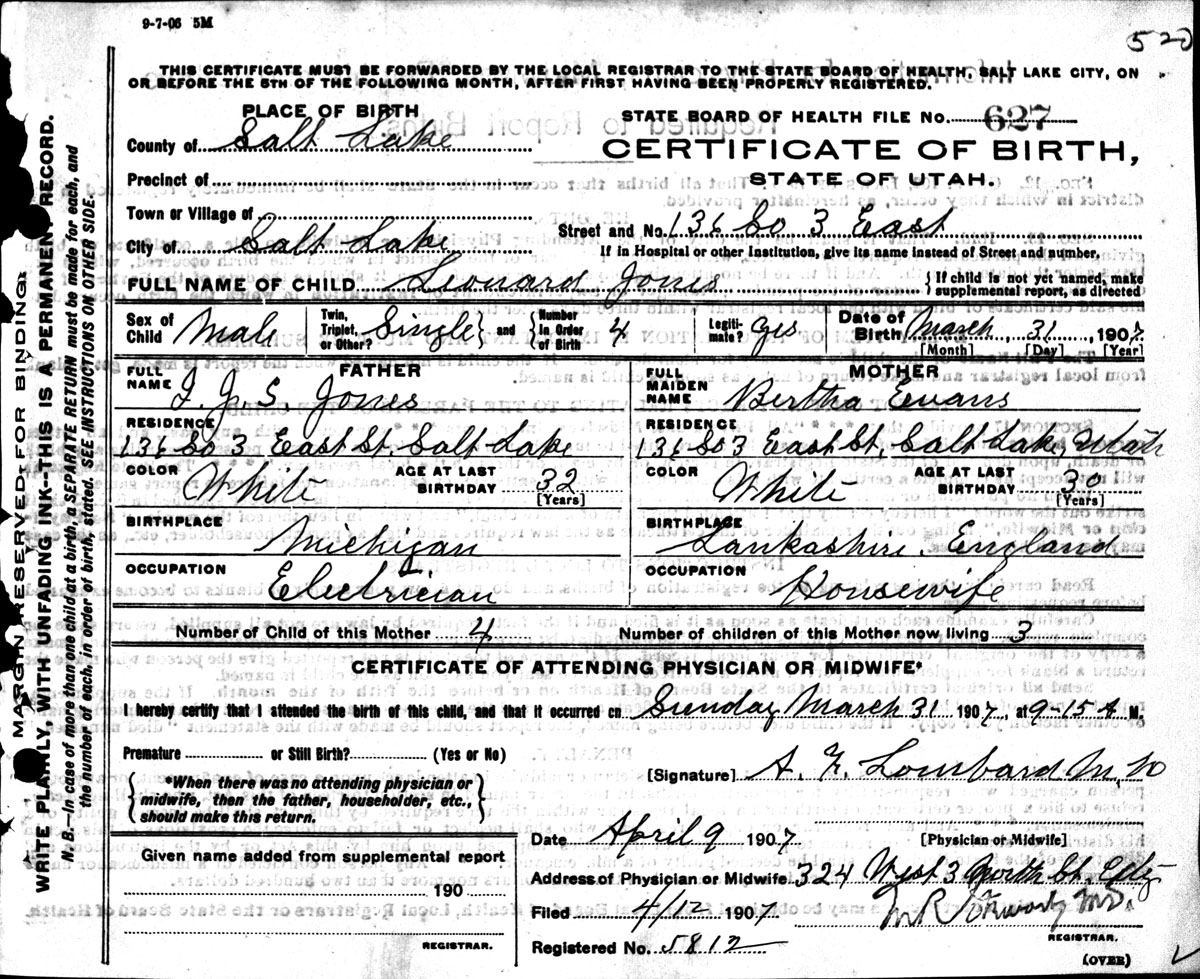 9-7-06 5M
520
THIS CERTIFICATE MUST BE FORWARDED BY THE LOCAL REGISTRAR TO THE STATE BOARD OF HEALTH, SALT LAKE CITY, ON
OR BEFORE THE 5TH OF THE FOLLOWING MONTH, AFTER FIRST HAVING BEEN PROPERLY REGISTERED.
PLACE OF BIRTH
STATE BOARD OF HEALTH FILE No. 627
County of Salt Lake
CERTIFICATE OF BIRTH,
Precinct of
STATE OF UTAH.
Town or Village of
Street and No. 136 So 3 East
City of Salt Lake
If in Hospital or other Institution, give its name instead of Street and number.
FULL NAME OF CHILD Leonard Jones
{If child is not yet named, make supplemental report, as directed
Sex of Child Male
Twin, Triplet, or Other? Single} and {Number in Order of Birth 4
Legiti- mate? yes
Date of Birth March 31 1907
[Month] [Day] [Year]
FATHER
FULL NAME I. J. S. Jones
RESIDENCE
136 So 3 East St. Salt Lake
COLOR White
AGE AT LAST BIRTHDAY 32
[Years]
BIRTHPLACE Michigan
OCCUPATION Electrician
MOTHER
FULL MAIDEN NAME Bertha Evans
RESIDENCE
136 So 3 East St, Salt Lake, Utah
COLOR White
AGE AT LAST BIRTHDAY 30
[Years]
BIRTHPLACE Lankashire. England
OCCUPATION Housewife
Number of Child of this Mother 4 Number of children of this Mother now living 3
CERTIFICATE OF ATTENDING PHYSICIAN OR MIDWIFE*
I hereby certify that I attended the birth of this child, and that it occurred on Sunday March 31 1907, at 9-15 A M.
Premature or Still Birth? (Yes or No)
{*When there was no attending physician or
midwife, then the father, householder, etc.,
should make this return.}
[Signature] A. F. Lombard M D
[Physician or Midwife]
Date April 9 1907
Given name added from supplemental report
190
REGISTRAR.
Address of Physician or Midwife 324 West 3 North St. City
Filed 4/12 1907
M.D.
REGISTRAR.
Registered No. 5812
(OVER)
MARGIN RESERVED FOR BINDING.
WRITE PLAINLY, WITH UNFADING INK—THIS IS A PERMANENT RECORD.
N. B.—In case of more than one child at a birth, a SEPARATE RETURN must be made for each, and
the number of each, in order of birth, stated. SEE INSTRUCTIONS ON OTHER SIDE.